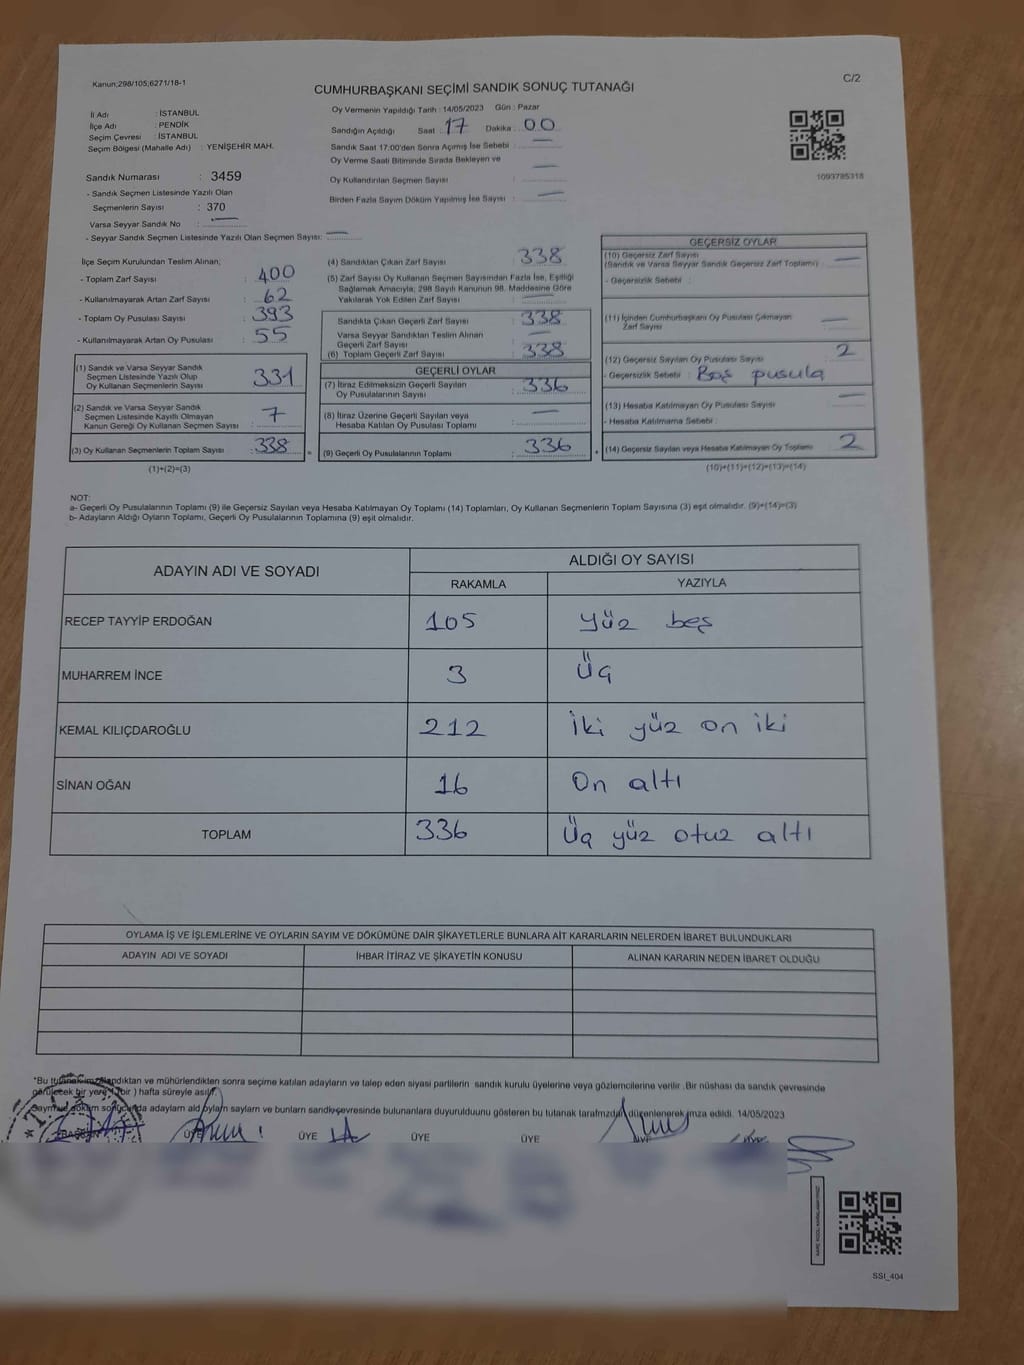 Kanun;298/105;6271/18-1
C/2
CUMHURBAŞKANI SEÇİMİ SANDIK SONUÇ TUTANAĞI
İl Adı : İSTANBUL
İlçe Adı : PENDİK
Seçim Çevresi : İSTANBUL
Seçim Bölgesi (Mahalle Adı) : YENİŞEHİR MAH.
Sandık Numarası : 3459
- Sandık Seçmen Listesinde Yazılı Olan
Seçmenlerin Sayısı : 370
Varsa Seyyar Sandık No : —
- Seyyar Sandık Seçmen Listesinde Yazılı Olan Seçmen Sayısı: —
Oy Vermenin Yapıldığı Tarih : 14/05/2023 Gün : Pazar
Sandığın Açıldığı Saat : 17 Dakika : 00
Sandık Saat 17:00'den Sonra Açımış İse Sebebi : —
Oy Verme Saati Bitiminde Sırada Bekleyen ve
Oy Kullandırılan Seçmen Sayısı : —
Birden Fazla Sayım Döküm Yapılmış İse Sayısı : —
1093785318
İlçe Seçim Kurulundan Teslim Alınan;
- Toplam Zarf Sayısı : 400
- Kullanılmayarak Artan Zarf Sayısı : 62
- Toplam Oy Pusulası Sayısı : 393
- Kullanılmayarak Artan Oy Pusulası : 55
(1) Sandık ve Varsa Seyyar Sandık
Seçmen Listesinde Yazılı Olup
Oy Kullanan Seçmenlerin Sayısı : 331
(2) Sandık ve Varsa Seyyar Sandık
Seçmen Listesinde Kayıtlı Olmayan
Kanun Gereği Oy Kullanan Seçmen Sayısı : 7
(3) Oy Kullanan Seçmenlerin Toplam Sayısı : 338
(1)+(2)=(3)
(4) Sandıktan Çıkan Zarf Sayısı : 338
(5) Zarf Sayısı Oy Kullanan Seçmen Sayısından Fazla İse, Eşitliği
Sağlamak Amacıyla; 298 Sayılı Kanunun 98. Maddesine Göre
Yakılarak Yok Edilen Zarf Sayısı : —
Sandıkta Çıkan Geçerli Zarf Sayısı : 338
Varsa Seyyar Sandıktan Teslim Alınan
Geçerli Zarf Sayısı : —
(6) Toplam Geçerli Zarf Sayısı : 338
GEÇERLİ OYLAR
(7) İtiraz Edilmeksizin Geçerli Sayılan
Oy Pusulalarının Sayısı : 336
(8) İtiraz Üzerine Geçerli Sayılan veya
Hesaba Katılan Oy Pusulası Toplamı : —
= (9) Geçerli Oy Pusulalarının Toplamı : 336
GEÇERSİZ OYLAR
(10) Geçersiz Zarf Sayısı
(Sandık ve Varsa Seyyar Sandık Geçersiz Zarf Toplamı) : —
- Geçersizlik Sebebi :
(11) İçinden Cumhurbaşkanı Oy Pusulası Çıkmayan
Zarf Sayısı : —
(12) Geçersiz Sayılan Oy Pusulası Sayısı : 2
- Geçersizlik Sebebi : Boş pusula
(13) Hesaba Katılmayan Oy Pusulası Sayısı : —
- Hesaba Katılmama Sebebi :
+ (14) Geçersiz Sayılan veya Hesaba Katılmayan Oy Toplamı : 2
(10)+(11)+(12)+(13)=(14)
NOT:
a- Geçerli Oy Pusulalarının Toplamı (9) ile Geçersiz Sayılan veya Hesaba Katılmayan Oy Toplamı (14) Toplamları, Oy Kullanan Seçmenlerin Toplam Sayısına (3) eşit olmalıdır. (9)+(14)=(3)
b- Adayların Aldığı Oyların Toplamı, Geçerli Oy Pusulalarının Toplamına (9) eşit olmalıdır.
ADAYIN ADI VE SOYADI ALDIĞI OY SAYISI
RAKAMLA YAZIYLA
RECEP TAYYİP ERDOĞAN 105 yüz beş
MUHARREM İNCE 3 Üç
KEMAL KILIÇDAROĞLU 212 İki yüz on iki
SİNAN OĞAN 16 On altı
TOPLAM 336 Üç yüz otuz altı
OYLAMA İŞ VE İŞLEMLERİNE VE OYLARIN SAYIM VE DÖKÜMÜNE DAİR ŞİKAYETLERLE BUNLARA AİT KARARLARIN NELERDEN İBARET BULUNDUKLARI
ADAYIN ADI VE SOYADI İHBAR İTİRAZ VE ŞİKAYETİN KONUSU ALINAN KARARIN NEDEN İBARET OLDUĞU
"Bu tutanak imzalandıktan ve mühürlendikten sonra seçime katılan adayların ve talep eden siyasi partilerin sandık kurulu üyelerine veya gözlemcilerine verilir .Bir nüshası da sandık çevresinde
görülecek bir yere ( bir ) hafta süreyle asılır.
Sayım ve döküm sonucunda adayların ald oyların sayların ve bunların sandık çevresinde bulunanlara duyurulduunu gösteren bu tutanak tarafmzdan düzenlenerek imza edildi. 14/05/2023
BAŞKAN ÜYE ÜYE ÜYE ÜYE
SSI_404